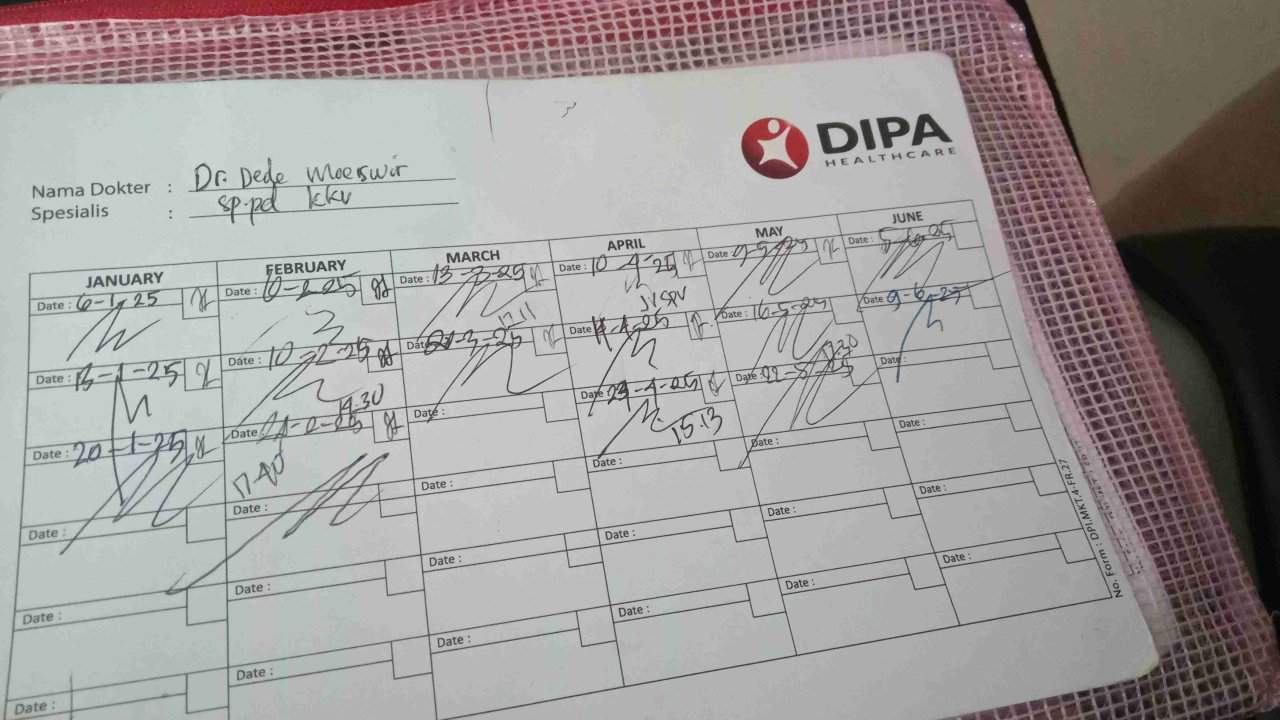 DIPA
HEALTHCARE
Nama Dokter : Dr. Dede Moerswir
Spesialis : sp.pd kkv
JANUARY FEBRUARY MARCH APRIL MAY JUNE
Date : 6-1-25 Date : 6-2-25 Date : 13-3-25 Date : 10-4-25 Date : 9-5-25 Date : 5-6-25
17.11
Date : 13-1-25 Date : 10-2-25 Date : 21-3-25 Date : 16-5-25 Date 9-6-25
14.30
Date : 20-1-25 Date Date : Date : 29-4-25 Date 22-5-25 Date :
17.40 15.13
Date : Date : Date : Date : Date : Date :
Date : Date : Date : Date : Date : Date :
Date : Date : Date : Date : Date : Date :
No. Form : DPI.MKT.4-FR.27